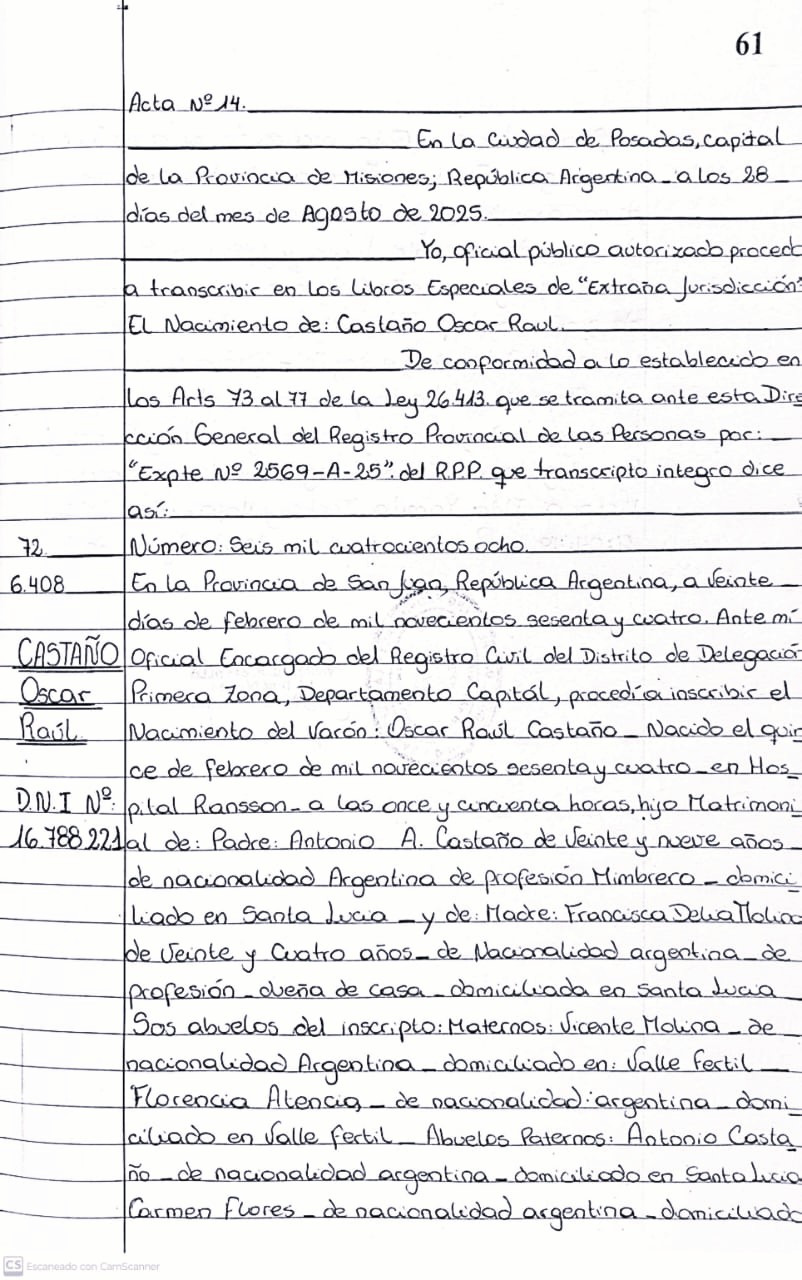 61
Acta Nº 14.
En la Ciudad de Posadas, capital
de la Provincia de Misiones; República Argentina - a los 28
días del mes de Agosto de 2025.
Yo, oficial público autorizado procedo
a transcribir en los Libros Especiales de "Extraña Jurisdicción"
El Nacimiento de: Castaño Oscar Raul.
De conformidad a lo establecido en
los Arts 73 al 77 de la Ley 26.413. que se tramita ante esta Dire
cción General del Registro Provincial de las Personas por:
"Expte Nº 2569-A-25". del R.P.P. que transcripto integro dice
así:
72 Número: Seis mil cuatrocientos ocho.
6.408 En la Provincia de San Juan, República Argentina, a Veinte
días de febrero de mil novecientos sesenta y cuatro. Ante mí
CASTAÑO Oficial Encargado del Registro Civil del Distrito de Delegació
Oscar Primera Zona, Departamento Capital, procedí a inscribir el
Raúl. Nacimiento del Varón: Oscar Raúl Castaño - Nacido el quin
ce de febrero de mil novecientos sesenta y cuatro - en Hos
D.N.I Nº: pital Ransson - a las once y cincuenta horas, hijo Matrimoni
16.788.221 al de: Padre: Antonio A. Castaño de Veinte y nueve años
de nacionalidad Argentina de profesión Mimbrero - domici
liado en Santa Lucia - y de: Madre: Francisca Delia Molina
de Veinte y Cuatro años - de Nacionalidad argentina - de
profesión - dueña de casa - domiciliada en Santa Lucia
Sos abuelos del inscripto: Maternos: Vicente Molina - de
nacionalidad Argentina - domiciliado en: Valle Fertil
Florencia Atencia - de nacionalidad: argentina - domi
ciliado en Valle fertil - Abuelos Paternos: Antonio Casta
ño - de nacionalidad argentina - domiciliado en Santa Lucia
Carmen Flores - de nacionalidad argentina - domiciliado
CS Escaneado con CamScanner